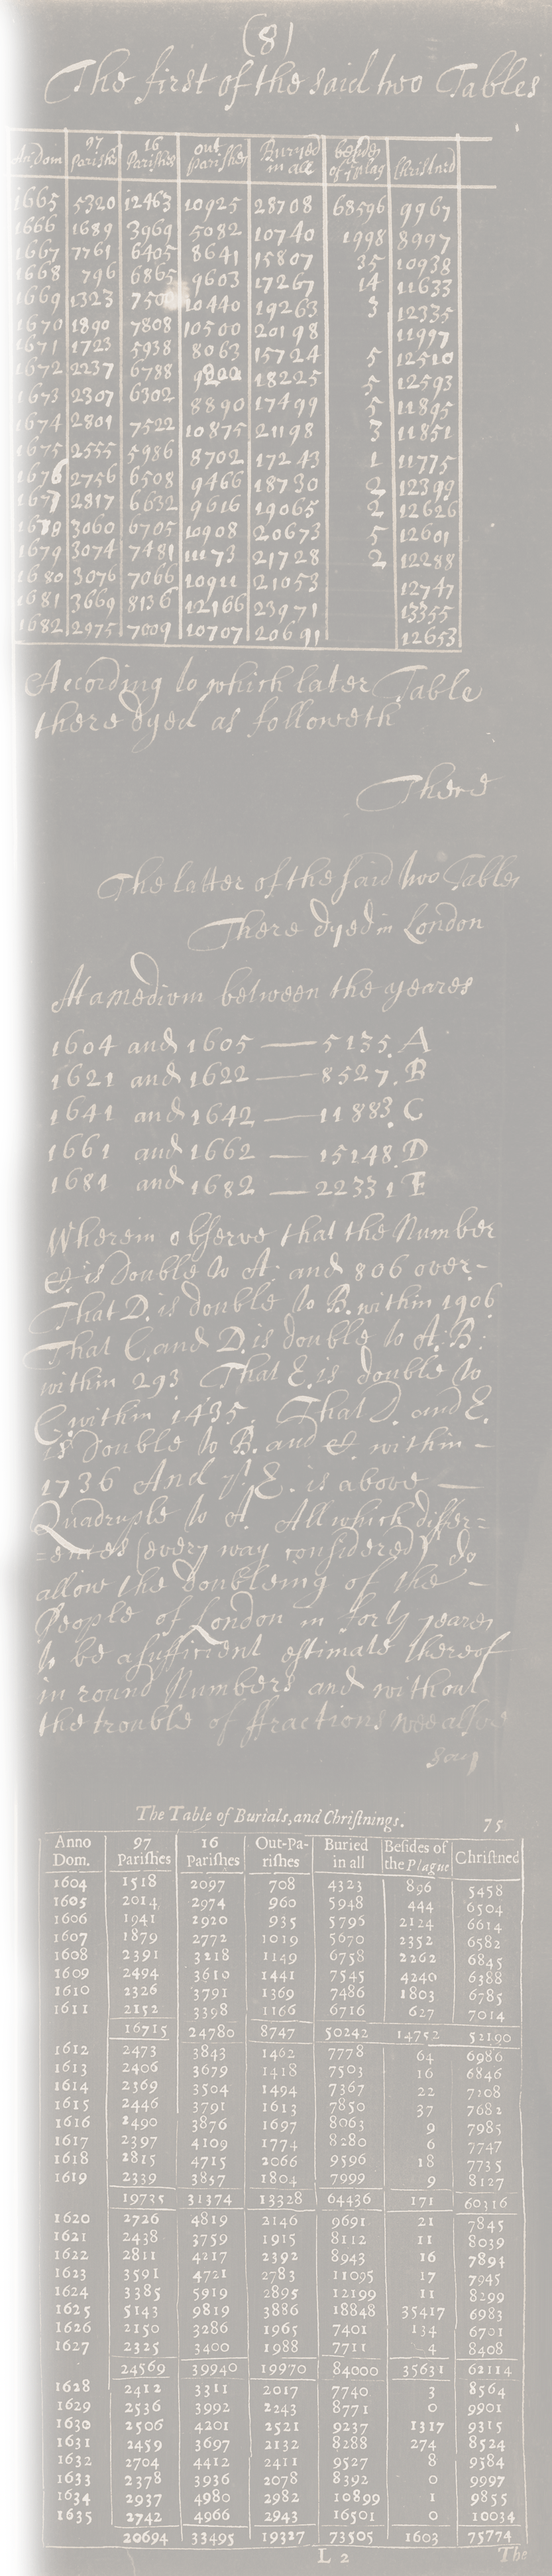 (8)
The first of the said two Tables
An:Dom 97 Parishes 16 Parishes out Parishes Buryed in all besides of ye plag Christned
1665 5320 12463 10925 28708 68596 9967
1666 1689 3969 5082 10740 1998 8997
1667 7761 6405 8641 15807 35 10938
1668 796 6865 9603 17267 14 11633
1669 1323 7500 10440 19263 3 12335
1670 1890 7808 10500 20198 11997
1671 1723 5938 8063 15724 5 12510
1672 2237 6788 9200 18225 5 12593
1673 2307 6302 8890 17499 5 11895
1674 2801 7522 10875 21198 3 11851
1675 2555 5986 8702 17243 1 11775
1676 2756 6508 9466 18730 2 12399
1677 2817 6632 9616 19065 2 12626
1678 3060 6705 10908 20673 5 12601
1679 3074 7481 11173 21728 2 12288
1680 3076 7066 10911 21053 12747
1681 3669 8136 12166 23971 13355
1682 2975 7009 10707 20691 12653
According to which later Table
there dyed as followeth
There
The latter of the said two Tables
There dyed in London
At a medium between the yeares
1604 and 1605 — 5135. A
1621 and 1622 — 8527. B
1641 and 1642 — 11883. C
1661 and 1662 — 15148. D
1681 and 1682 — 22331 E
Wherein observe that the Number
C. is double to A: and 806 over-
That D. is double to B. within 1906
That C. and D. is double to A. B:
within 293 That E. is double to
C. within 1435. That D. and E.
is double to B. and C. within -
1736 And yt. E. is above —
Quadruple to A. All which differ=
=ences (every way considered) do
allow the doubleing of the -
People of London in forty yeares
to be a sufficient estimate thereof
in round Numbers and without
the trouble of ffractions wee alsoe
say
The Table of Burials, and Christnings. 75
Anno Dom. 97 Parishes 16 Parishes Out-Parishes Buried in all Besides of the Plague Christned
1604 1518 2097 708 4323 896 5458
1605 2014 2974 960 5948 444 6504
1606 1941 2920 935 5796 2124 6614
1607 1879 2772 1019 5670 2352 6582
1608 2391 3218 1149 6758 2262 6845
1609 2494 3610 1441 7545 4240 6388
1610 2326 3791 1369 7486 1803 6785
1611 2152 3398 1166 6716 627 7014
16715 24780 8747 50242 14752 52190
1612 2473 3843 1462 7778 64 6986
1613 2406 3679 1418 7503 16 6846
1614 2369 3504 1494 7367 22 7208
1615 2446 3791 1613 7850 37 7682
1616 2490 3876 1697 8063 9 7985
1617 2397 4109 1774 8280 6 7747
1618 2815 4715 2066 9596 18 7735
1619 2339 3857 1804 7999 9 8127
19735 31374 13328 64436 171 60316
1620 2726 4819 2146 9691 21 7845
1621 2438 3759 1915 8112 11 8039
1622 2811 4217 2392 8943 16 7894
1623 3591 4721 2783 11095 17 7945
1624 3385 5919 2895 12199 11 8299
1625 5143 9819 3886 18848 35417 6983
1626 2150 3286 1965 7401 134 6701
1627 2325 3400 1988 7711 4 8408
24569 39940 19970 84000 35631 62114
1628 2412 3311 2017 7740 3 8564
1629 2536 3992 2243 8771 0 9901
1630 2506 4201 2521 9237 1317 9315
1631 2459 3697 2132 8288 274 8524
1632 2704 4412 2411 9527 8 9584
1633 2378 3936 2078 8392 0 9997
1634 2937 4980 2982 10899 1 9855
1635 2742 4966 2943 16501 0 10034
20694 33495 19327 73505 1603 75774
L 2 The